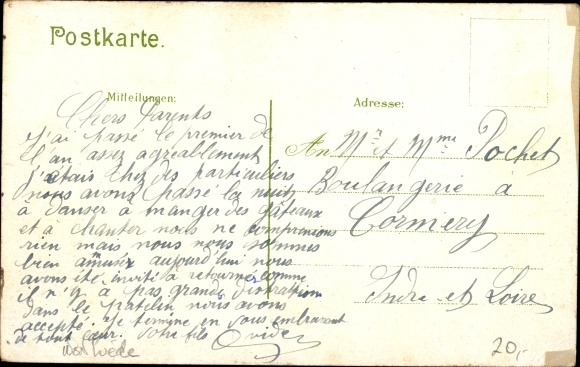 Postkarte.
Mitteilungen:
Chers Parents
J'ai passé le premier de
l'an assez agréablement
j'étais chez des particuliers
nous avons passé la nuit
à danser à manger des gâteaux
et à chanter nous ne comprenions
rien mais nous nous sommes
bien amusés aujourd'hui nous
avons été invité à retourner comme
il n'y a pas grande distraction
dans le patelin nous avons
accepté. Je termine en vous embrassant
de tout cœur. Votre fils Ovide
Adresse:
An Mr et Mme Pochet
Boulangerie à
Cormery
Indre-et-Loire
20,-